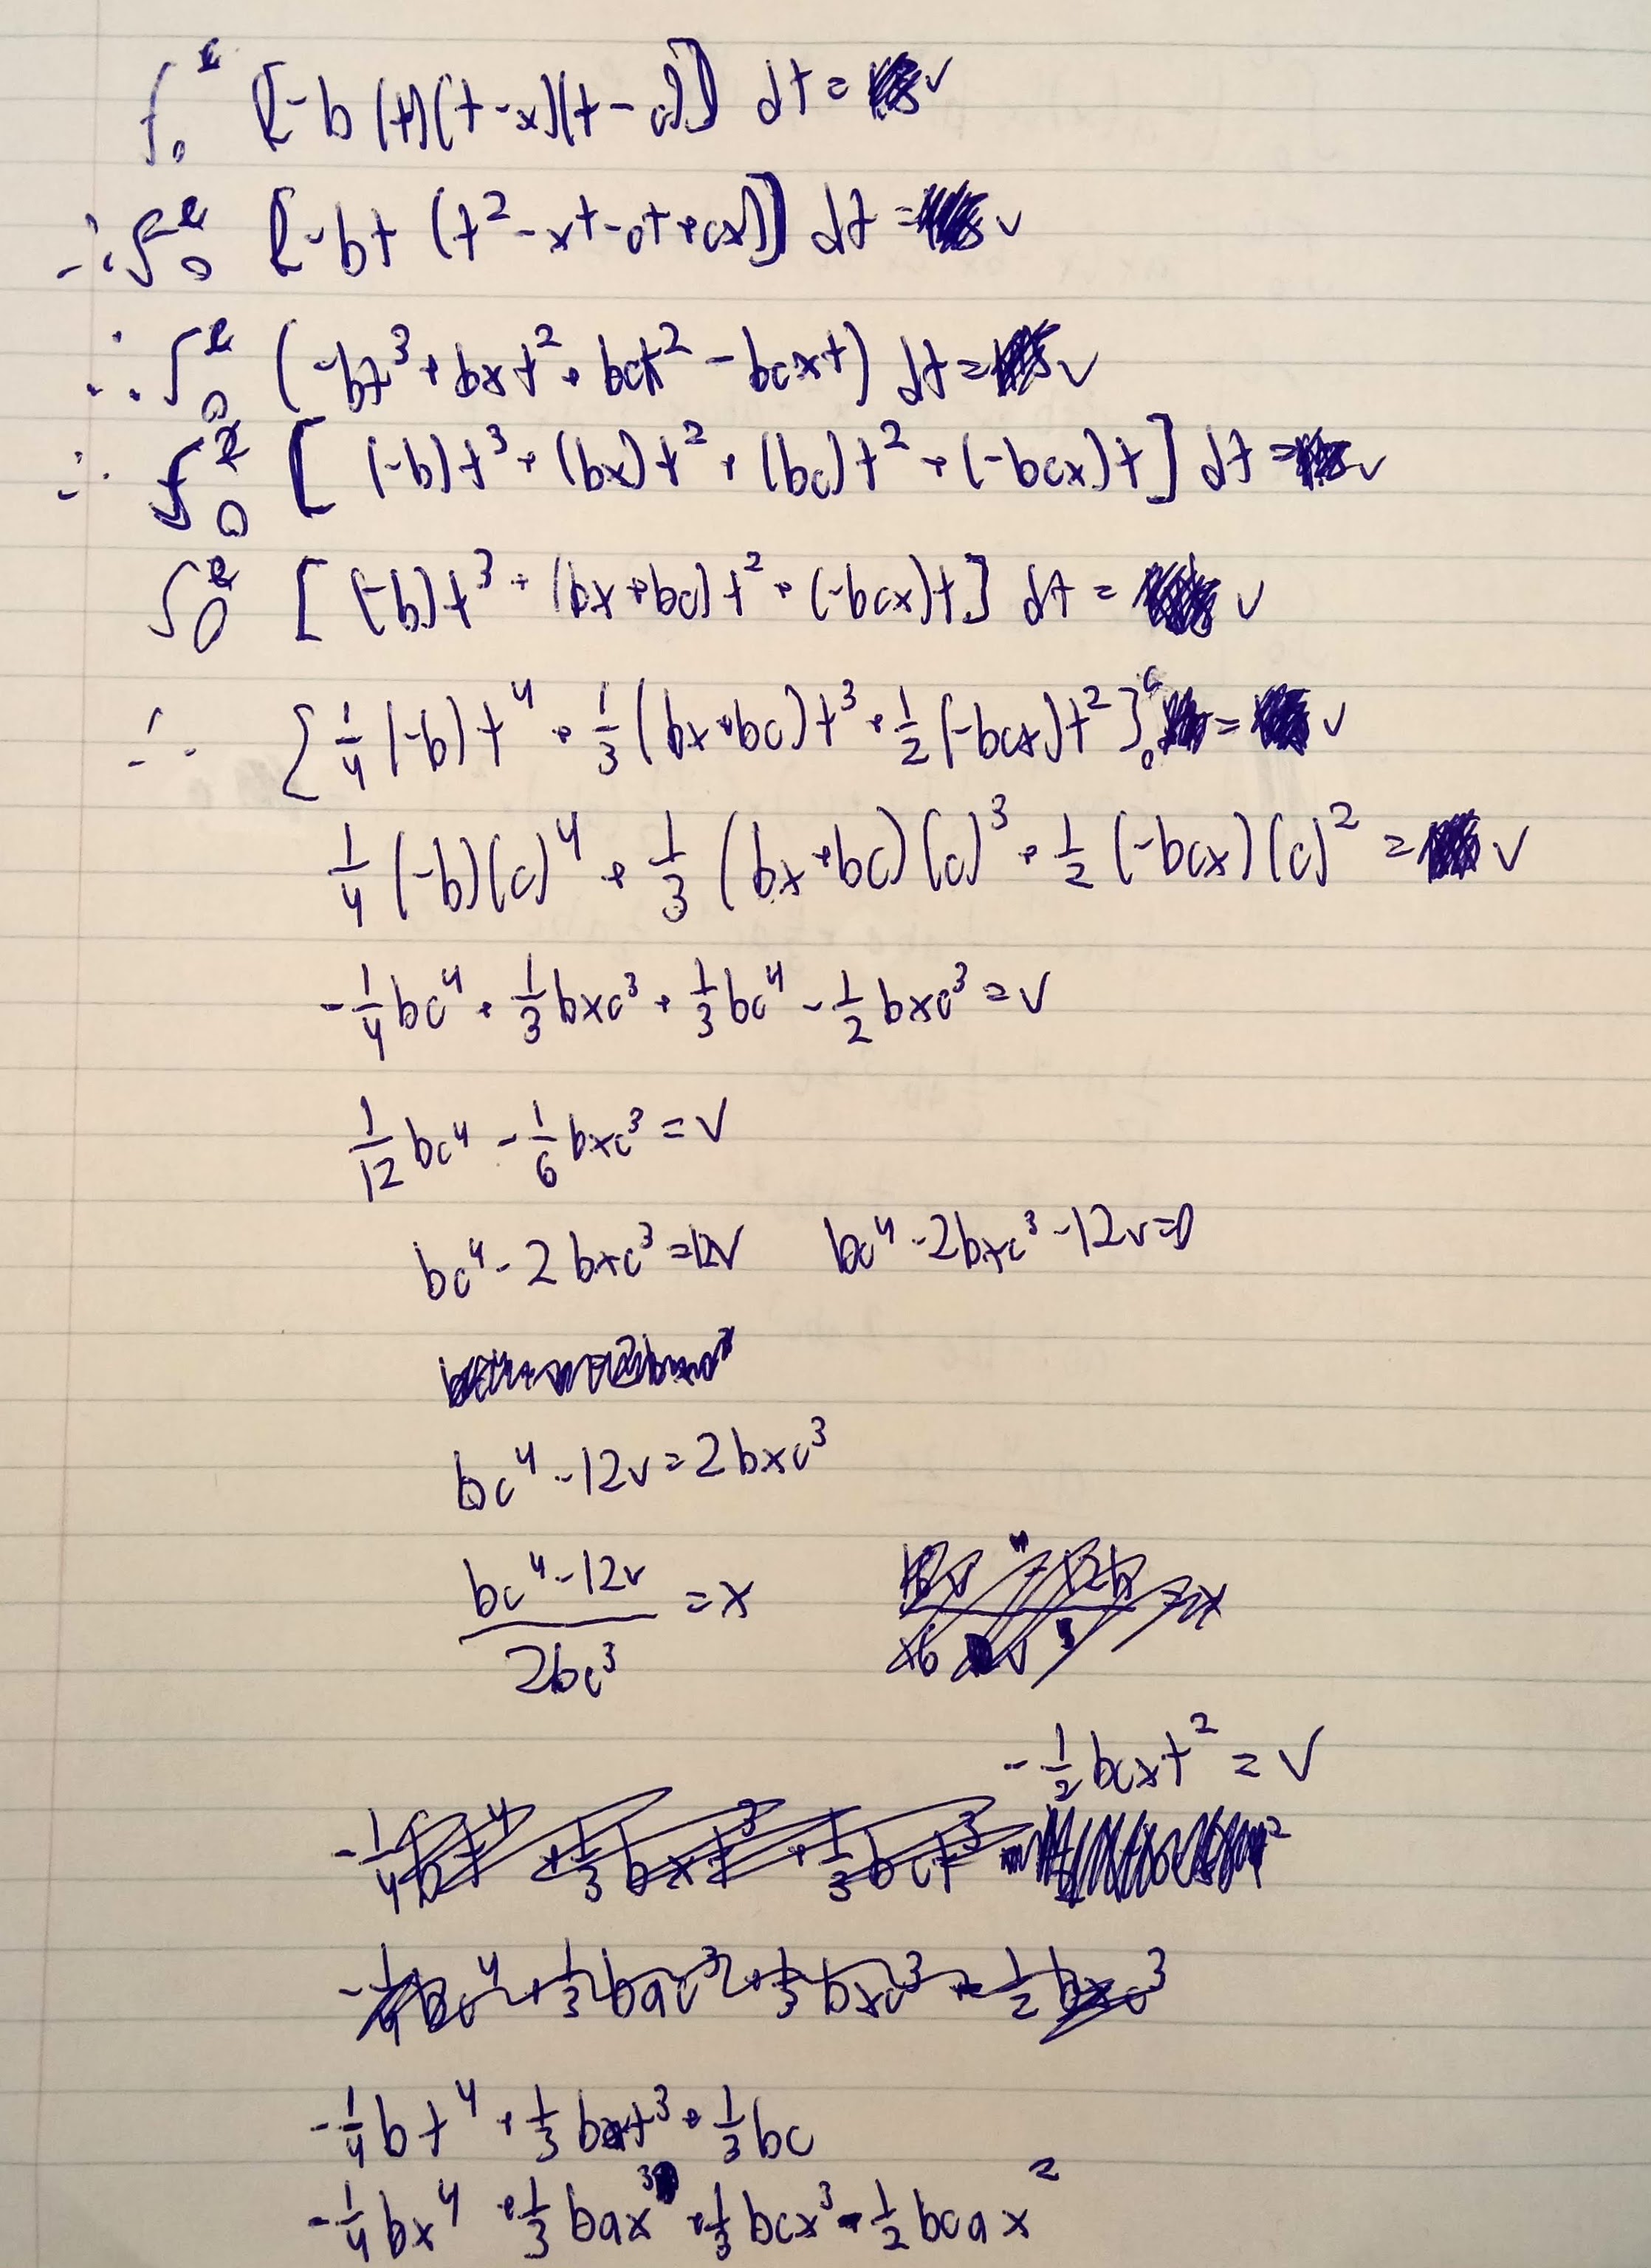 ∫₀ᶜ [-b(t)(t-x)(t-c)] dt = v
∴ ∫₀ᶜ [-bt (t²-xt-ct+cx)] dt = v
∴ ∫₀ᶜ (-bt³+bxt²+bct²-bcxt) dt = v
∴ ∫₀ᶜ [(-b)t³+(bx)t²+(bc)t²+(-bcx)t] dt = v
∫₀ᶜ [(-b)t³+(bx+bc)t²+(-bcx)t] dt = v
∴ [1/4(-b)t⁴+1/3(bx+bc)t³+1/2(-bcx)t²]₀ᶜ = v
1/4(-b)(c)⁴+1/3(bx+bc)(c)³+1/2(-bcx)(c)² = v
-1/4bc⁴+1/3bxc³+1/3bc⁴-1/2bxc³=v
1/12bc⁴-1/6bxc³=v
bc⁴-2bxc³=12v bc⁴-2bxc³-12v=0
bc⁴-12v=2bxc³
(bc⁴-12v)/(2bc³) = x
-1/2bcxt²=v
-1/4bt⁴+1/3bxt³+1/3bct³
-1/4bc⁴+1/3bac³+1/3bxc³-1/2bxc³
-1/4bt⁴+1/3bat³+1/3bc
-1/4bx⁴+1/3bax³+1/3bcx³-1/2bcax²